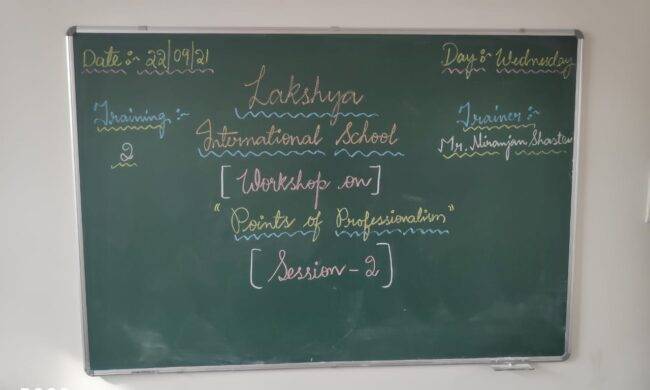 Date:- 22/09/21
Day:- Wednesday
Lakshya
International School
Training:-
2
Trainer:-
Mr. Niranjan
[Workshop on]
"Points of Professionalism"
[Session - 2]